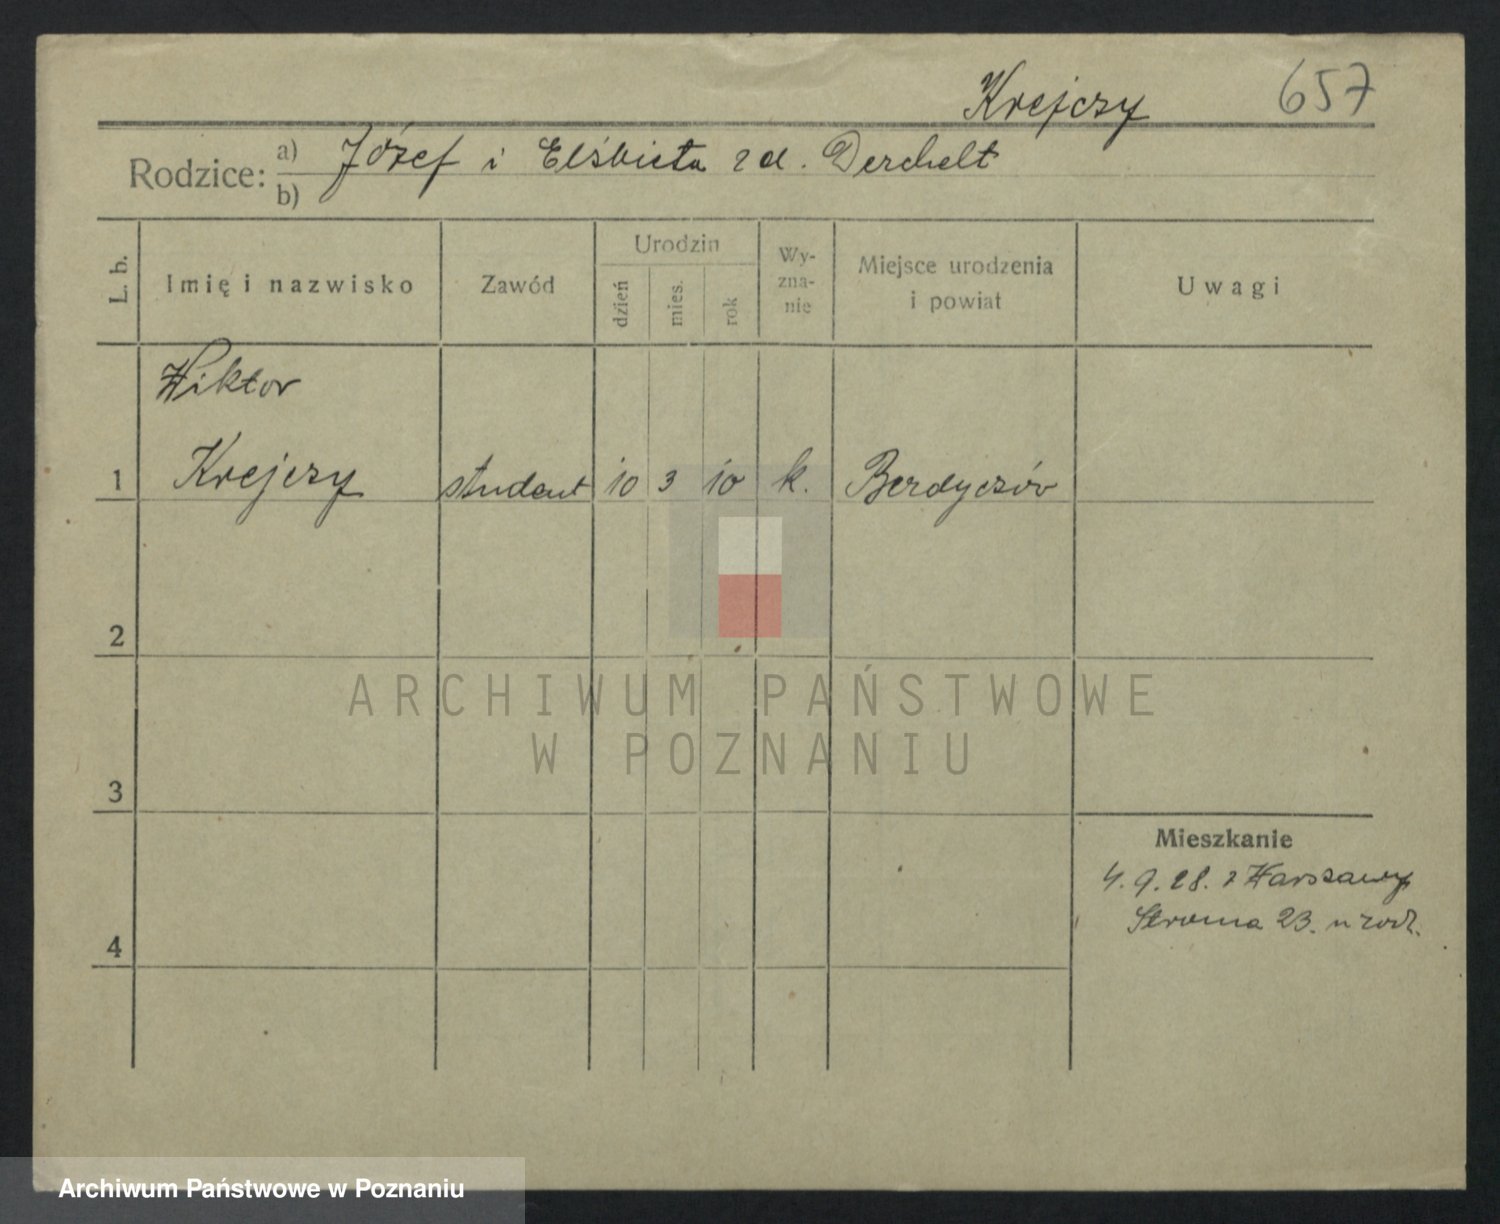 Krejczy 657
Rodzice: a) Józef i Elżbieta zd. Derchelt
b)
L. b. Imię i nazwisko Zawód Urodzin dzień mies. rok Wy-zna-nie Miejsce urodzenia i powiat Uwagi
Wiktor
1 Krejczy student 10 3 10 k. Berdyczów
2
ARCHIWUM PAŃSTWOWE
W POZNANIU
3
Mieszkanie
4. 9. 28. z Warszawy
Stroma 23. u rodz.
4
Archiwum Państwowe w Poznaniu